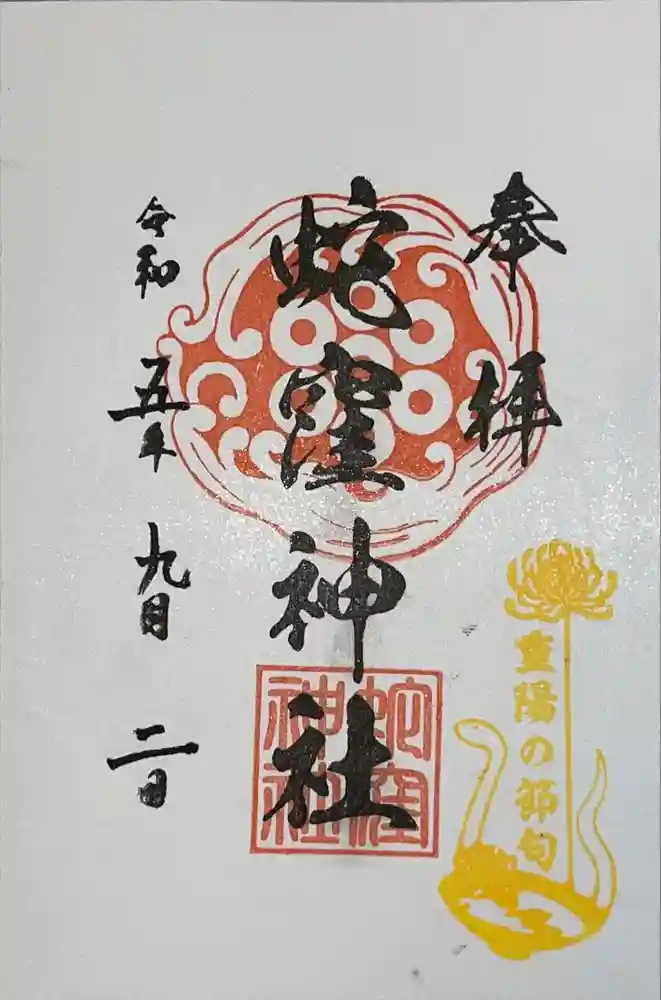 奉拝
蛇窪神社
蛇窪
神社
令和五年九月二日
重陽の節句